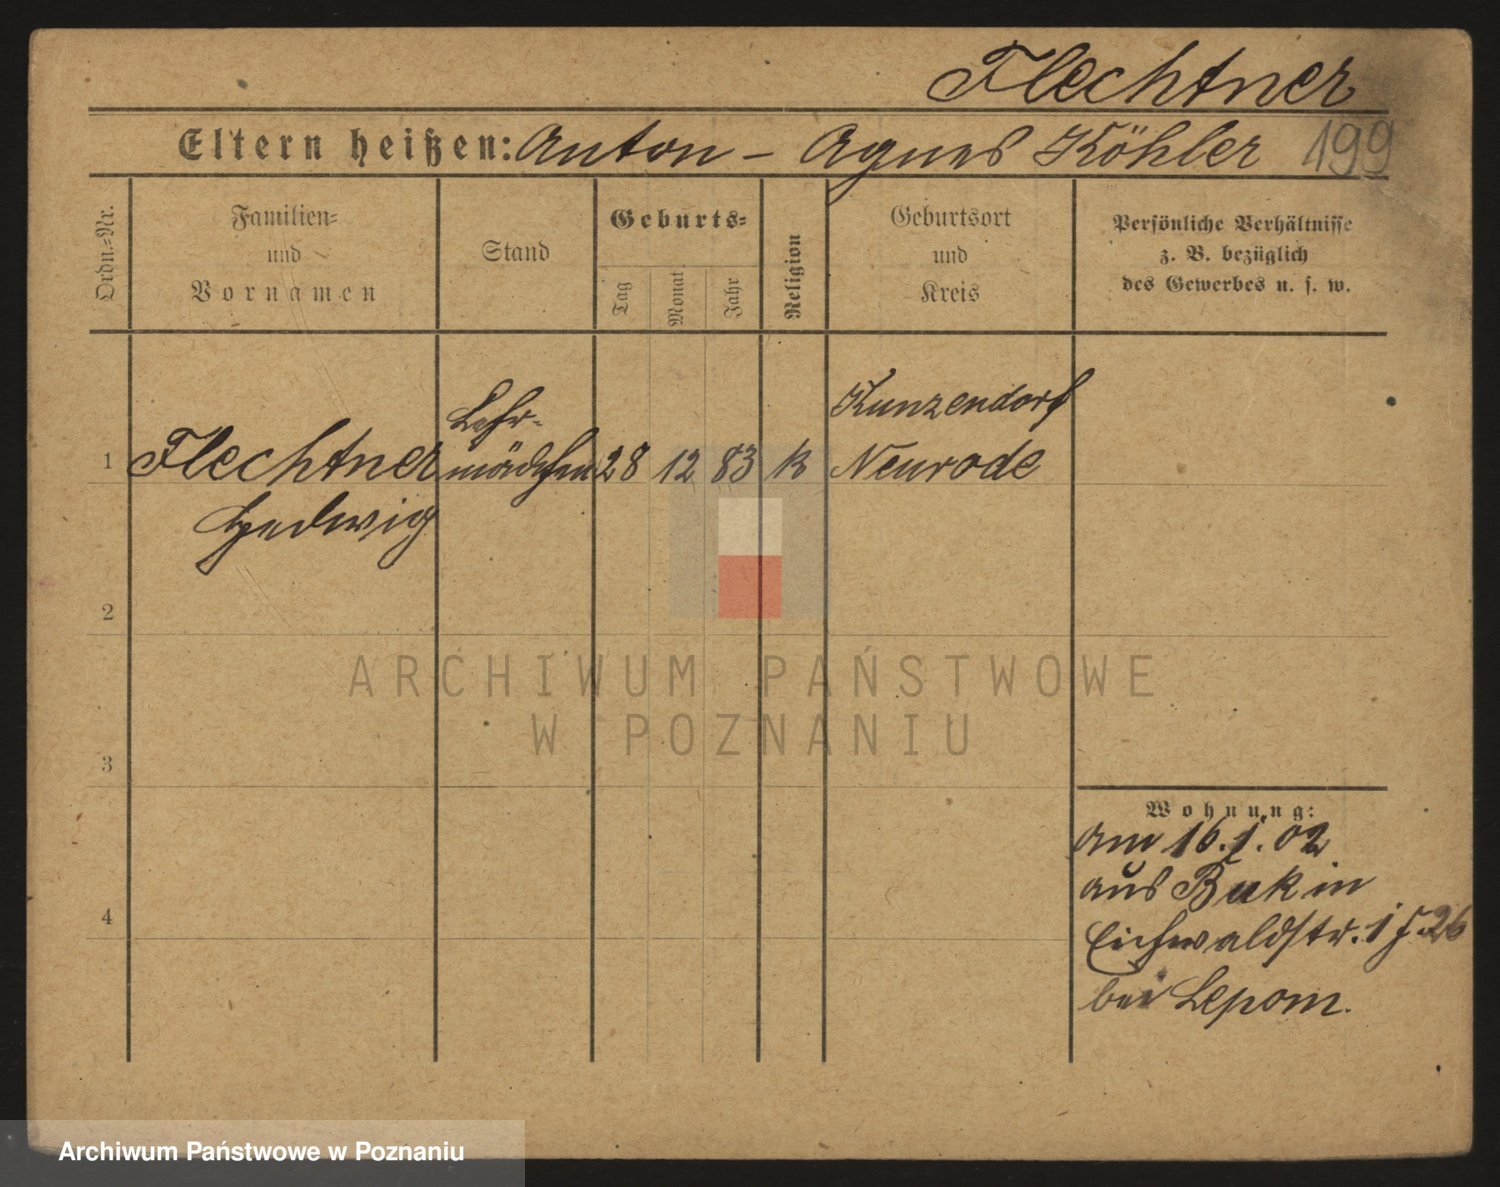 Flechtner
Eltern heißen: Anton – Agnes Köhler 199
Ordn.=Nr.
Familien=
und
Vornamen
Stand
Geburts=
Tag
Monat
Jahr
Religion
Geburtsort
und
Kreis
Persönliche Verhältnisse
z. B. bezüglich
des Gewerbes u. s. w.
Kunzendorf
Lehr-
1 Flechtner mädchen 28 12 83 k Neurode
Hedwig
2
ARCHIWUM PAŃSTWOWE
W POZNANIU
3
Wohnung:
am 16.1.02
aus Buk in
4
Eichwaldstr. 1 26
bei Lepom.
Archiwum Państwowe w Poznaniu